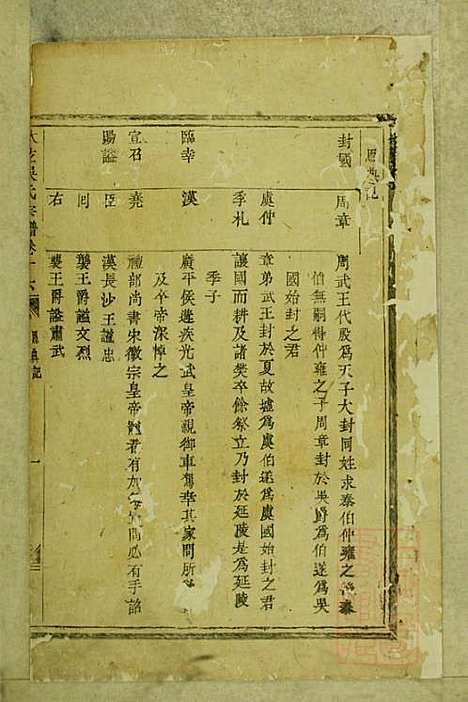 恩典記
封國 周章 周武王代殷爲天子大封同姓求泰伯仲雍之後泰
伯無嗣得仲雍之子周章封於吳爵爲伯遂爲吳
國始封之君
虞仲 章弟武王封於夏故墟爲虞伯遂爲虞國始封之君
季札 讓國而耕及諸樊卒餘祭立乃封於延陵是爲延陵
季子
臨幸 漢 廣平侯遘疾光武皇帝親御車駕幸其家問所
及卒帝深悼之
宣召 堯 禮部尚書宋徽宗皇帝 君有 問必有手詔
賜謚 臣 漢長沙王謚忠
回 襲王爵謚文烈
右 襲王爵謚肅武
吳氏宗譜卷十六 恩典記 一